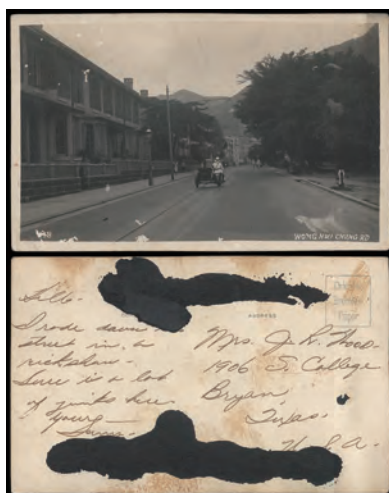 WONG NEI CHONG RD
Hello-
I rode down
street in a
rickshaw-
Sure is a lot
of junks here
Yours
ADDRESS
Mrs. J. R. Wood-
1906 S. College
Bryan,
Texas.
U.S.A.